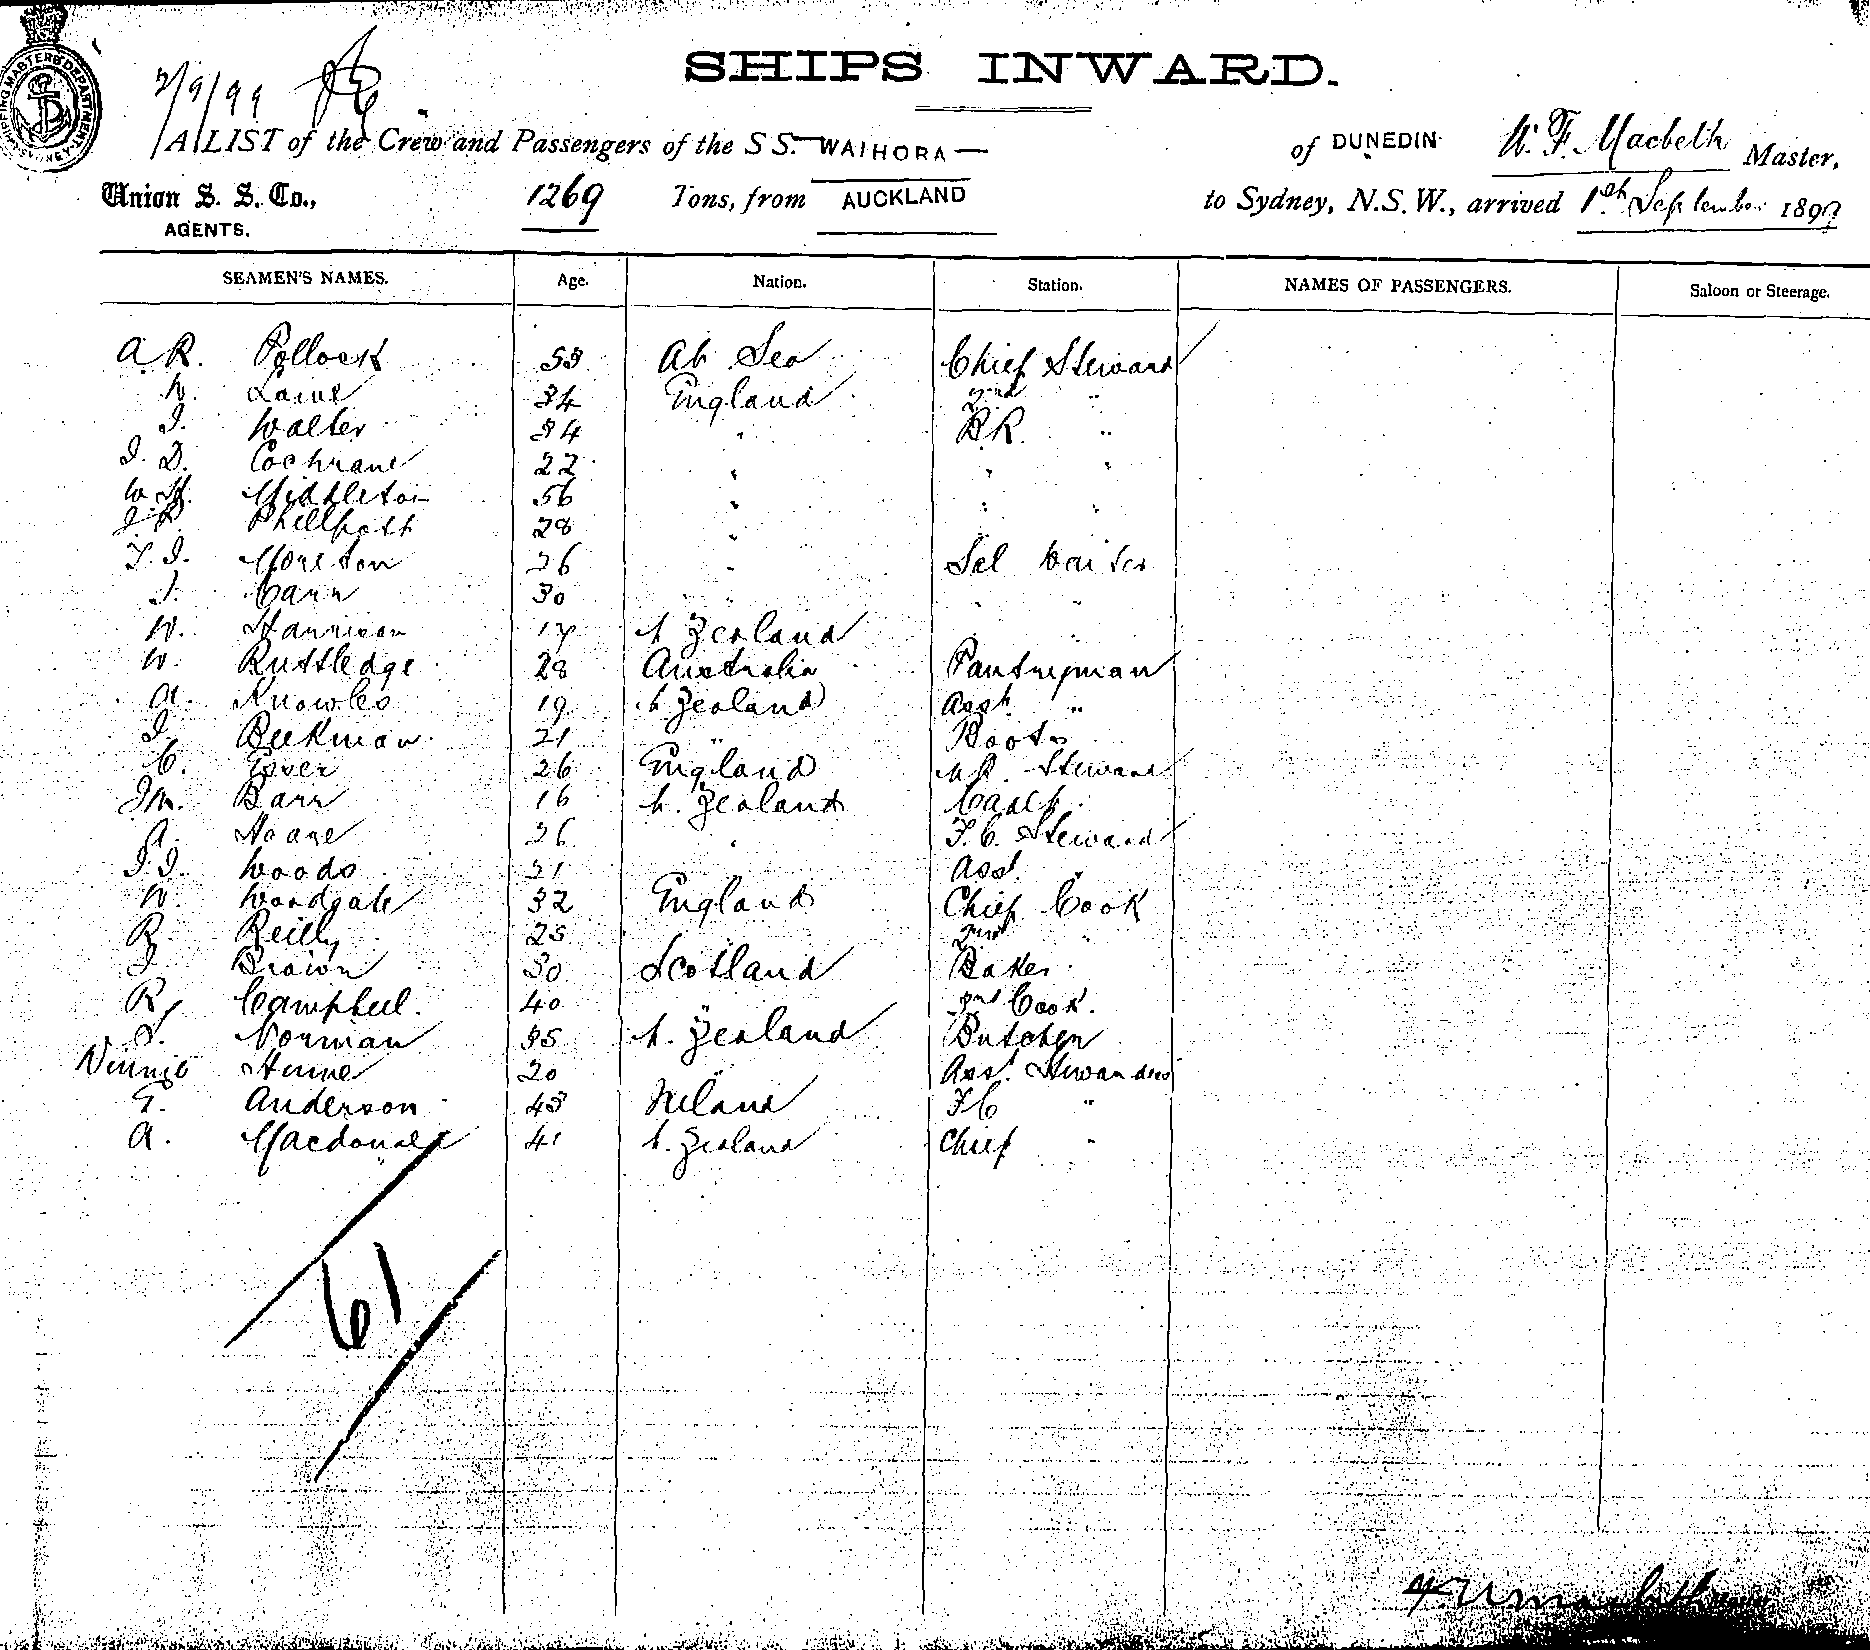 SHIPPING MASTER'S DEPARTMENT SYDNEY
2/9/99
SHIPS INWARD.
A LIST of the Crew and Passengers of the S S. WAIHORA of DUNEDIN W. F. Macbeth Master,
Union S. S. Co., 1269 Tons, from AUCKLAND to Sydney, N.S.W., arrived 1st September 1899
AGENTS.
SEAMEN'S NAMES. Age. Nation. Station. NAMES OF PASSENGERS. Saloon or Steerage.
A. R. Pollock 53 At Sea Chief Steward
W. 34 England 2nd "
J. Walter 34 " B.R. "
J. D. Cochrane 22 " " "
W. H. Middleton 56 " " "
Phillpott 28 "
T. J. Morston 26 " Sal Waiter
J. Cann 30 " " "
W. Harrison 17 N Zealand "
W. Ruttledge 28 Australia Pantryman
A. Knowles 19 N Zealand Asst. "
J. Beekman 21 " Boots
C. 26 England Steward
Jas. Barr 16 N. Zealand
A. Hoare 26 " F.C. Steward
J. J. Woods 21 Asst. "
W. Woodgate 32 England Chief Cook
R. Reilly 25 " 2nd "
J. Brown 30 Scotland Baker
R. Campbell. 40 3rd Cook.
S. Norman 35 N. Zealand Butcher
Hume 20 " Asst. Stewardess
G. Anderson 43 Ireland F C "
A. Macdonald 41 N. Zealand Chief "
61